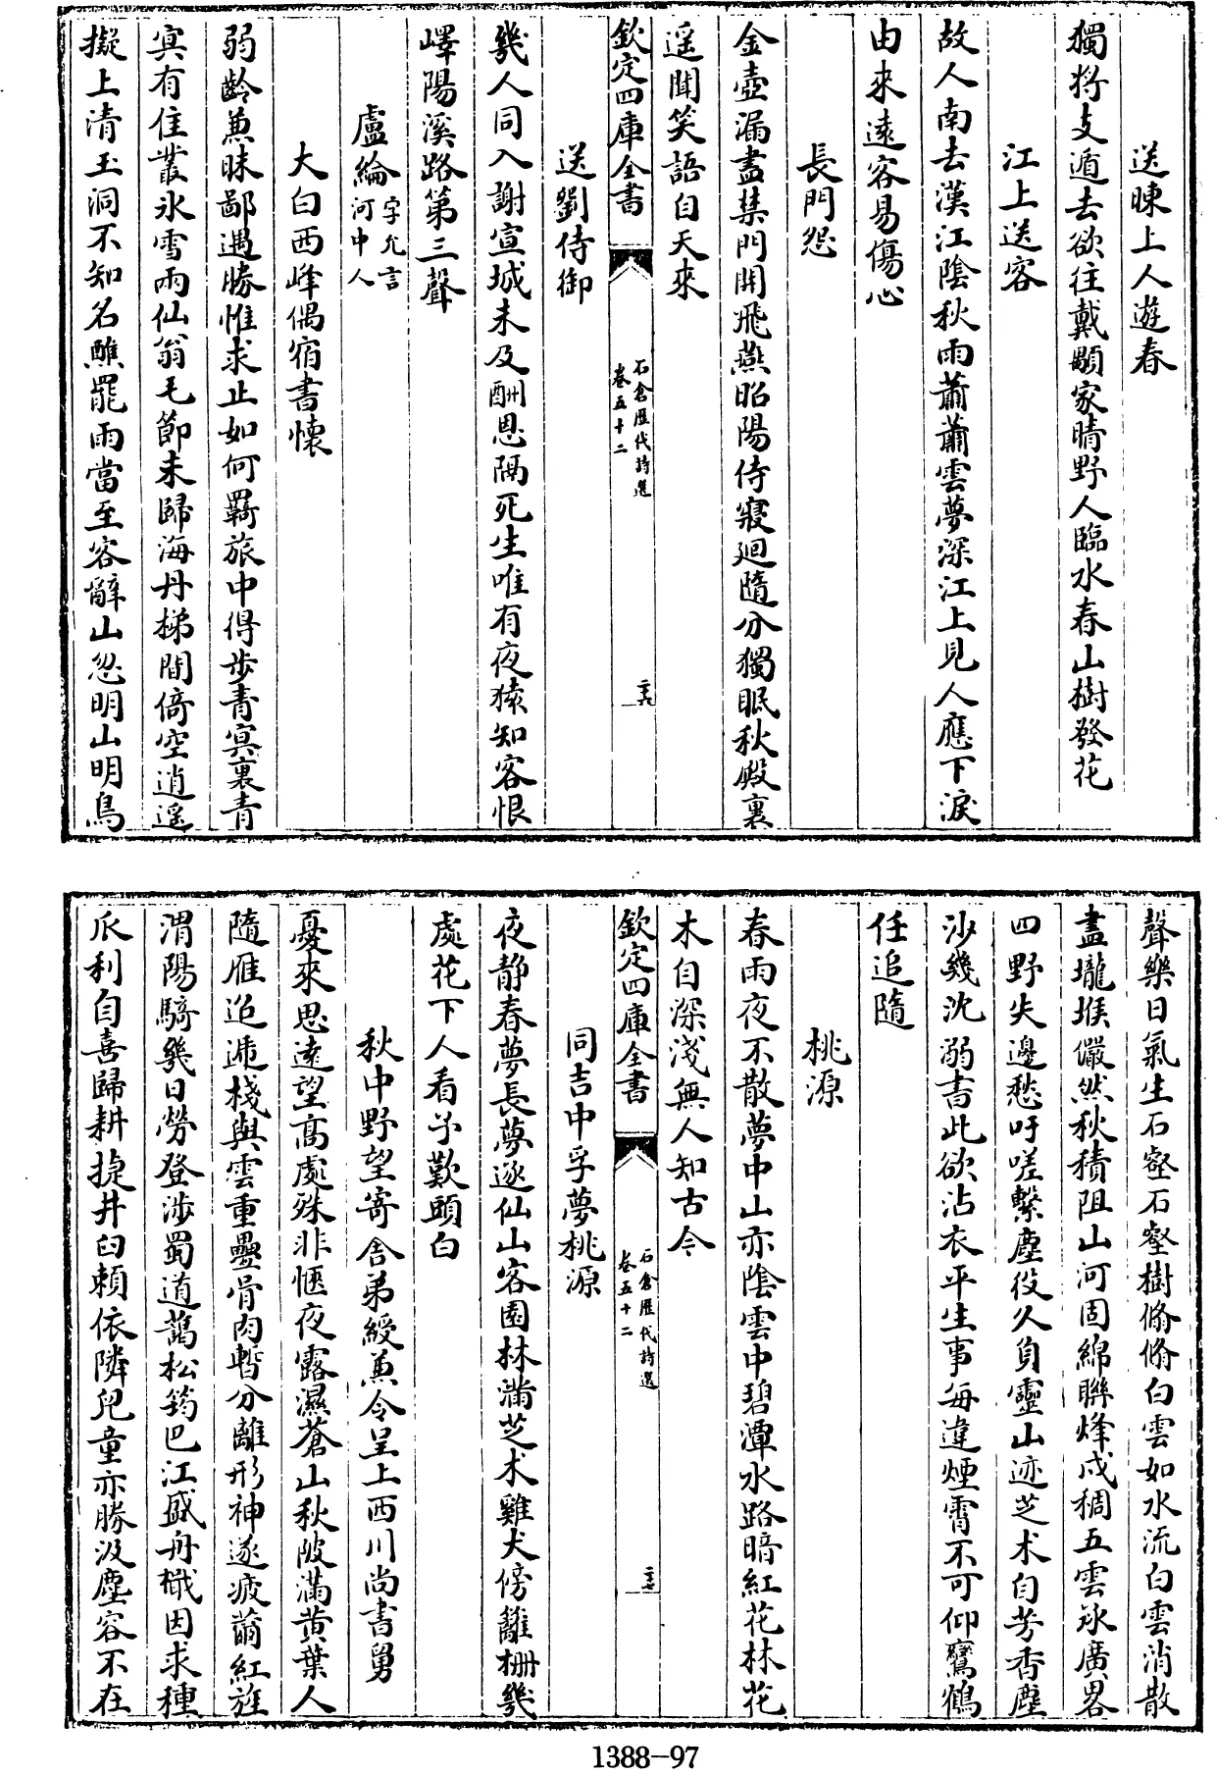 送暕上人遊春
獨将支遁去欲往戴顒家晴野人臨水春山樹發花
江上送客
故人南去漢江陰秋雨蕭蕭雲夢深江上見人應下淚
由來遠客易傷心
長門怨
金壺漏盡禁門開飛燕昭陽侍寢廻隨分獨眠秋殿裏
遥聞笑語自天來
欽定四庫全書
石倉歷代詩選
卷五十二
二十六
送劉侍御
幾人同入謝宣城未及酬恩隔死生唯有夜猿知客恨
嶧陽溪路第三聲
盧綸字允言河中人
大白西峰偶宿書懷
弱齡兼昧鄙遇勝惟求止如何羈旅中得步青㝠裏青
㝠有住叢氷雪兩仙翁毛節未歸海丹梯間倚空逍遥
擬上清玉洞不知名醮罷雨當至客辭山忽明山明鳥
聲樂日氣生石壑石壑樹翛翛白雲如水流白雲消散
盡壠堠儼然秋積阻山河固綿聯烽戍稠五雲泳廣畧
四野失邊愁吁嗟繫塵役久負靈山迹芝术自芳香塵
沙幾沈溺書此欲沾衣平生事每違煙霄不可仰鸞鶴
任追隨
桃源
春雨夜不散夢中山亦陰雲中碧潭水路暗紅花林花
木自深淺無人知古今
欽定四庫全書
石倉歷代詩選
卷五十二
二十七
同吉中孚夢桃源
夜静春夢長夢逐仙山客園林滿芝术雞犬傍籬栅幾
處花下人看予歎頭白
秋中野望寄舍弟綬兼令呈上西川尚書舅
憂來思遠望高處殊非愜夜露濕蒼山秋陂滿黄葉人
隨雁迢遞棧與雲重疊骨肉暫分離形神遂疲薾紅旌
渭陽騎幾日勞登涉蜀道藹松筠巴江盛舟檝因求種
瓜利自喜歸耕捷井臼頼依隣兒童亦勝汲塵容不在
1388-97